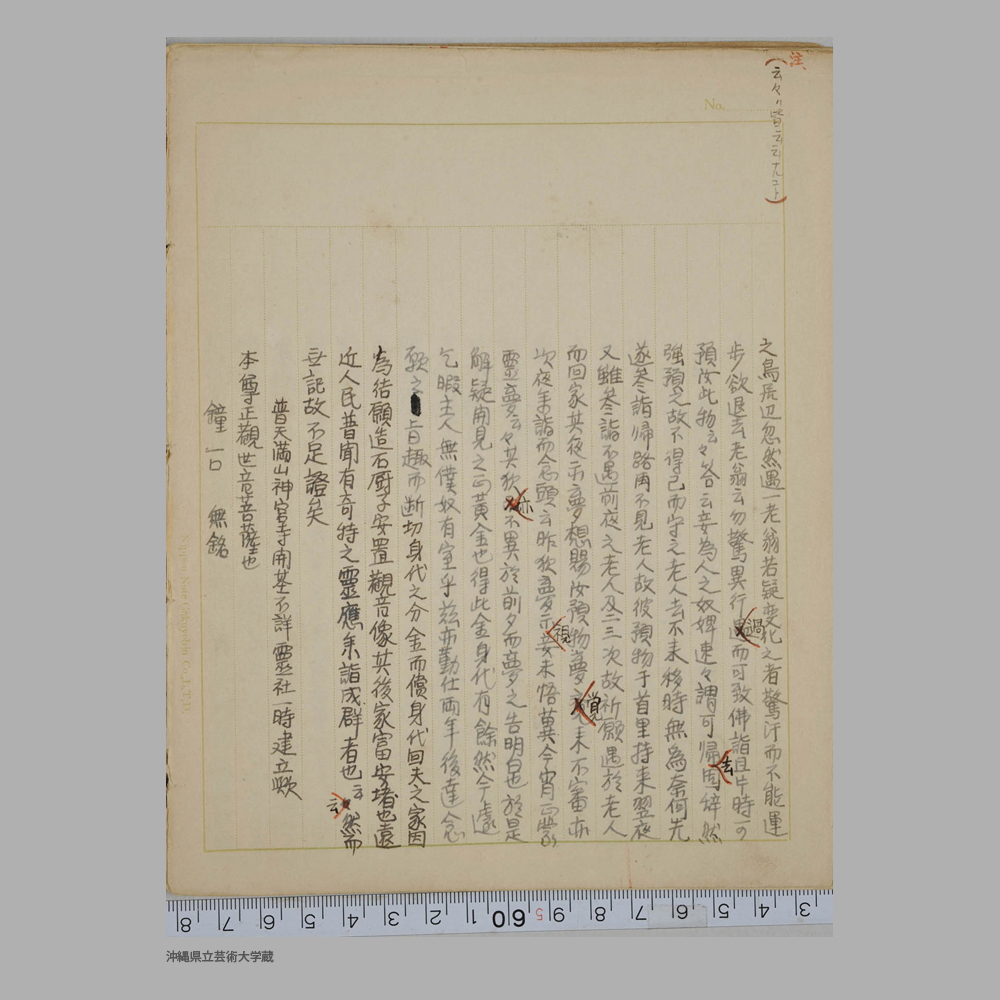 注
(云々ハ皆云云ナルコト)
No.
之鳥居辺忽然遇一老翁若疑変化之者驚汗而不能運
步欲退去老翁云勿驚異行過而可致佛詣且片時可
預汝此物云々答云妾為人之奴婢速々謂可帰去固辞然
強預之故不得已而守之老人去不来移時無為奈何先
遂参詣帰路再不見老人故彼預物于首里持来翌夜
又雖参詣不遇前夜之老人及二三次故祈願遇於老人
而回家其夜示夢想賜汝預物夢覚未不審亦
次夜参詣而念願云昨犾夢示妾未悟冀今宵正蒙
視
靈夢云々其犾亦不異於前夕而夢之告明白也於是
解疑開見之正黄金也得此金身代有餘然今遽
乞暇主人無僕奴有室乎茲亦勤仕両年後達念
願之旨趣而断切身代之分金而償身代回夫之家因
為結願造石厨子安置観音像其後家富安堵也遠
近人民普聞有奇特之靈應参詣成群者也云云然而
無記故不足證矣
普天満山神宮寺開基不詳靈社一時建立歟
本尊正觀世音菩薩也
鐘一口 無銘
8 7 6 5 4 3 2 1 60 5 9 8 7 6 5 4 3
沖縄県立芸術大学蔵